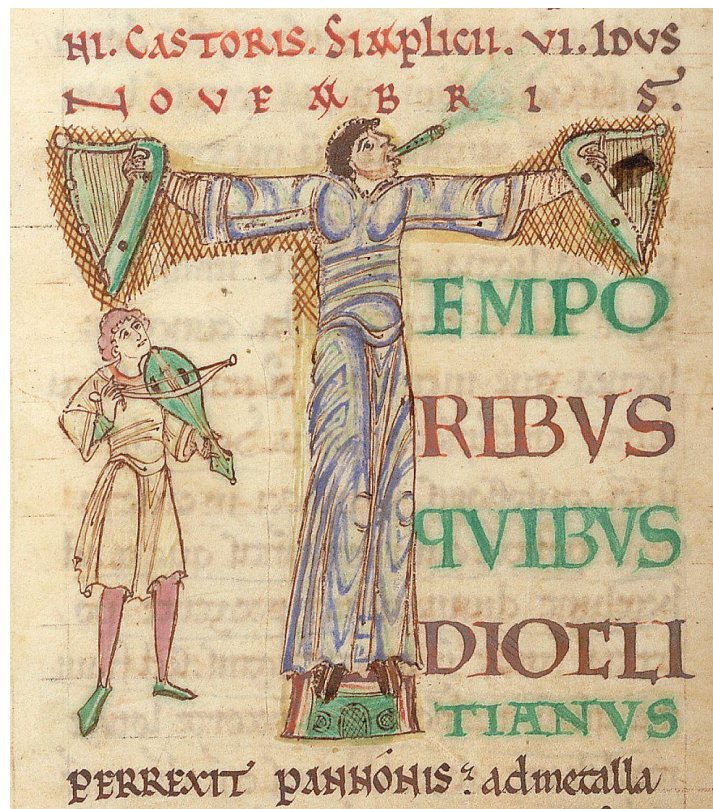 NI. CASTORIS. SIMPLICII. VI. IDUS
NOVEMBRIS.
TEMPO
RIBVS
QVIBVS
DIOCLI
TIANVS
PERREXIT PANNONIS: ad metalla